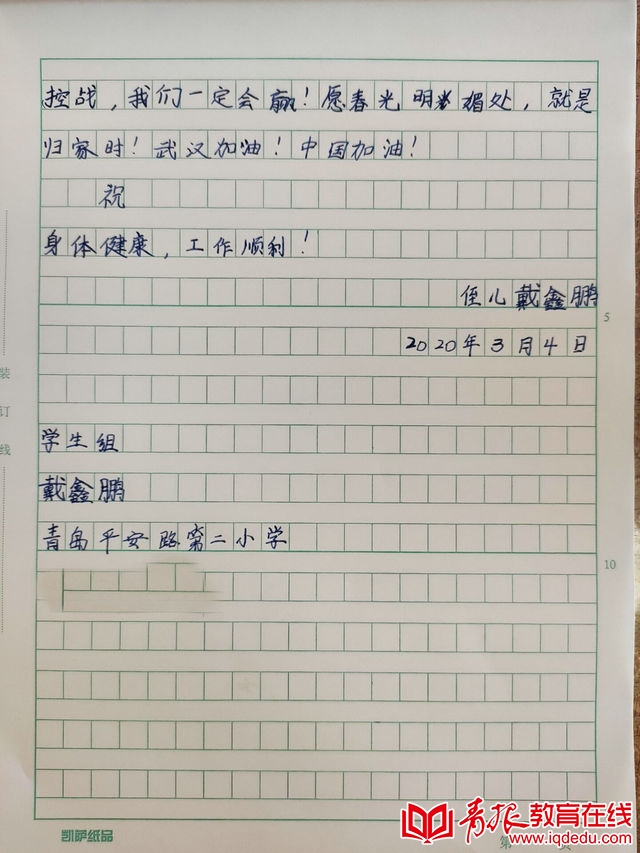 控战，我们一定会赢！愿春光明媚处，就是
归家时！武汉加油！中国加油！
祝
身体健康，工作顺利！
侄儿戴鑫鹏
5
2020年3月4日
装
学生组
订
线
戴鑫鹏
青岛平安路第二小学
10
凯萨纸品
第 页
青报教育在线
www.iqdedu.com